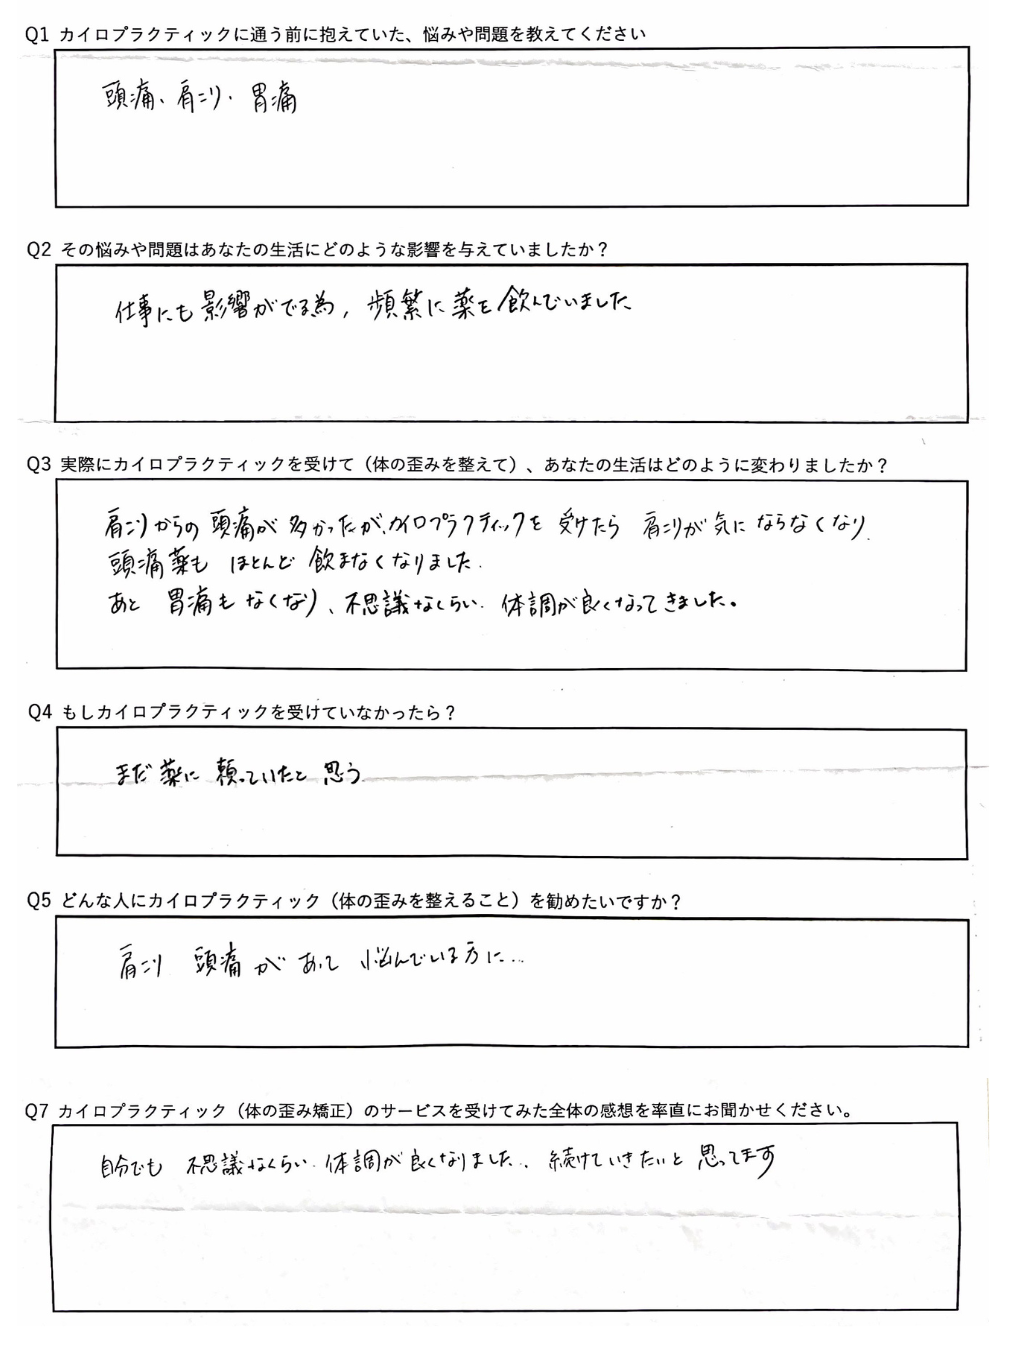 Q1 カイロプラクティックに通う前に抱えていた、悩みや問題を教えてください
頭痛、肩こり、胃痛
Q2 その悩みや問題はあなたの生活にどのような影響を与えていましたか？
仕事にも影響がでる為, 頻繁に薬を飲んでいました
Q3 実際にカイロプラクティックを受けて（体の歪みを整えて）、あなたの生活はどのように変わりましたか？
肩こりからの頭痛が多かったが、カイロプラクティックを受けたら肩こりが気にならなくなり、
頭痛薬もほとんど飲まなくなりました.
あと胃痛もなくなり、不思議なくらい、体調が良くなってきました。
Q4 もしカイロプラクティックを受けていなかったら？
まだ薬に頼っていたと思う
Q5 どんな人にカイロプラクティック（体の歪みを整えること）を勧めたいですか？
肩こり 頭痛があって 悩んでいる方に...
Q7 カイロプラクティック（体の歪み矯正）のサービスを受けてみた全体の感想を率直にお聞かせください。
自分でも 不思議なくらい、体調が良くなりました、続けていきたいと思ってます